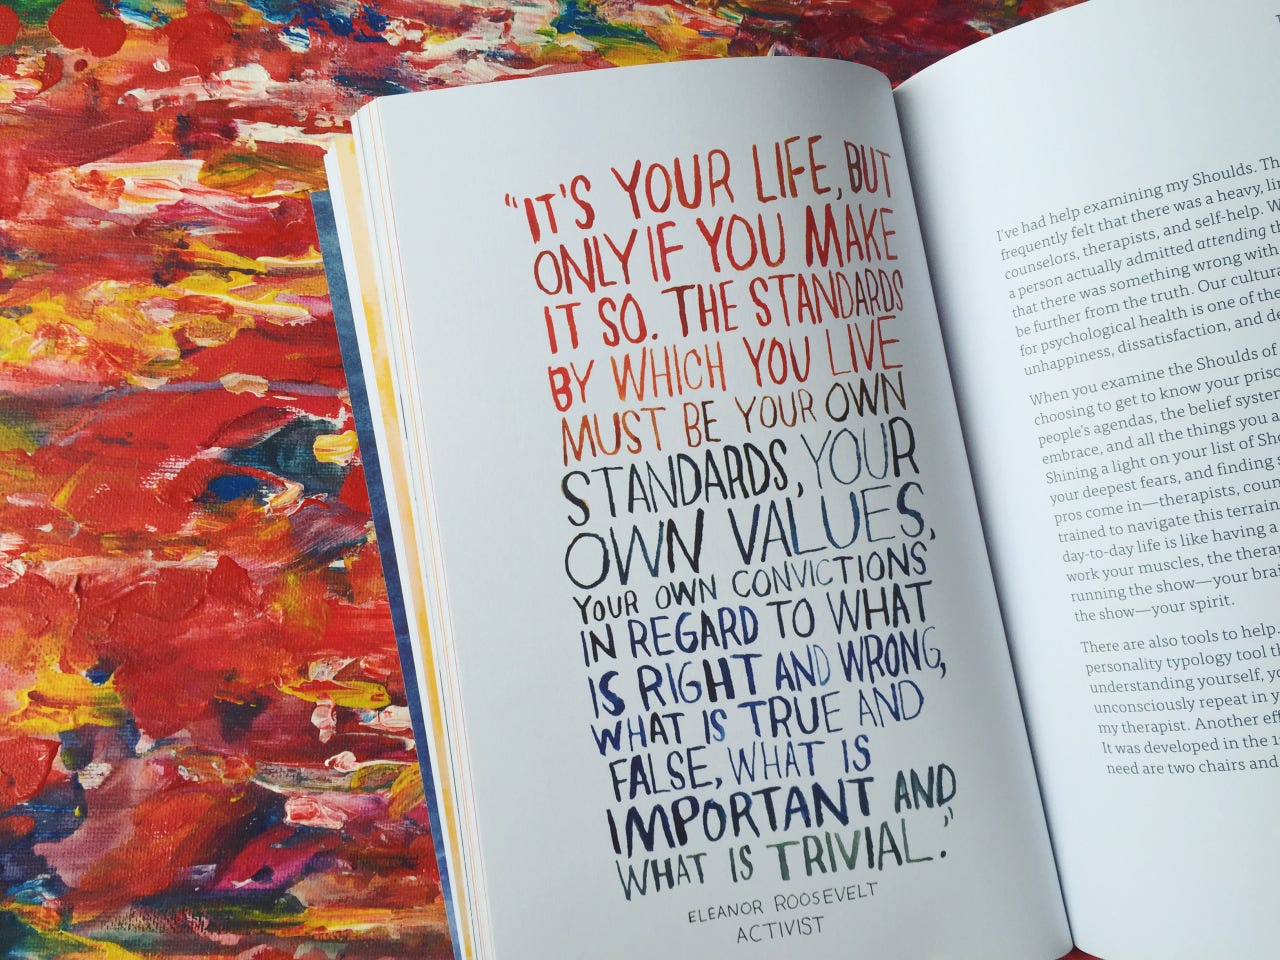 "IT'S YOUR LIFE, BUT
ONLY IF YOU MAKE
IT SO. THE STANDARDS
BY WHICH YOU LIVE
MUST BE YOUR OWN
STANDARDS, YOUR
OWN VALUES,
YOUR OWN CONVICTIONS
IN REGARD TO WHAT
IS RIGHT AND WRONG,
WHAT IS TRUE AND
FALSE, WHAT IS
IMPORTANT AND
WHAT IS TRIVIAL."
ELEANOR ROOSEVELT
ACTIVIST
I've had help examining my Shoulds.
frequently felt that there was a heavy,
counselors, therapists, and self-help.
a person actually admitted attending
that there was something wrong with
be further from the truth. Our
for psychological health is one of the
unhappiness, dissatisfaction, and
When you examine the Shoulds of
choosing to get to know your
people's agendas, the belief
embrace, and all the things you
Shining a light on your list of
your deepest fears, and finding
pros come in—therapists,
trained to navigate this terrain
day-to-day life is like having a
work your muscles, the
running the show—your
the show—your spirit.
There are also tools to help.
personality typology tool
understanding yourself,
unconsciously repeat in
my therapist. Another
It was developed in the
need are two chairs and